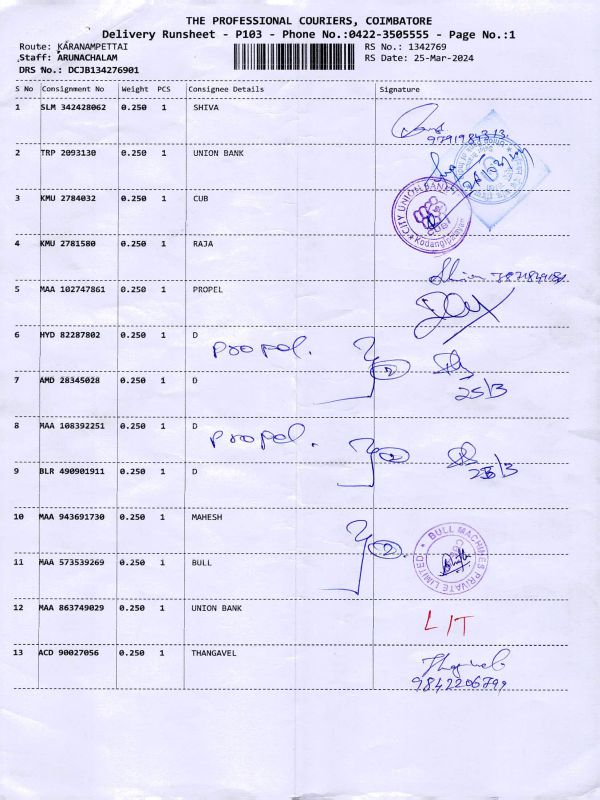 THE PROFESSIONAL COURIERS, COIMBATORE
Delivery Runsheet - P103 - Phone No.:0422-3505555 - Page No.:1
Route: KARANAMPETTAI RS No.: 1342769
Staff: ARUNACHALAM RS Date: 25-Mar-2024
DRS No.: DCJB134276901
S No Consignment No Weight PCS Consignee Details Signature
1 SLM 342428062 0.250 1 SHIVA
2 TRP 2093130 0.250 1 UNION BANK
3 KMU 2784032 0.250 1 CUB
CITY UNION BANK
CUB
Kodangipalayam
4 KMU 2781580 0.250 1 RAJA
5 MAA 102747861 0.250 1 PROPEL
6 HYD 82287802 0.250 1 D
Propel. 2
7 AMD 28345028 0.250 1 D
25/3
8 MAA 108392251 0.250 1 D
Propel. 2
9 BLR 490901911 0.250 1 D
10 MAA 943691730 0.250 1 MAHESH
2
11 MAA 573539269 0.250 1 BULL
BULL MACHINES PRIVATE LIMITED
12 MAA 863749029 0.250 1 UNION BANK
L/T
13 ACD 90027056 0.250 1 THANGAVEL
9842206799